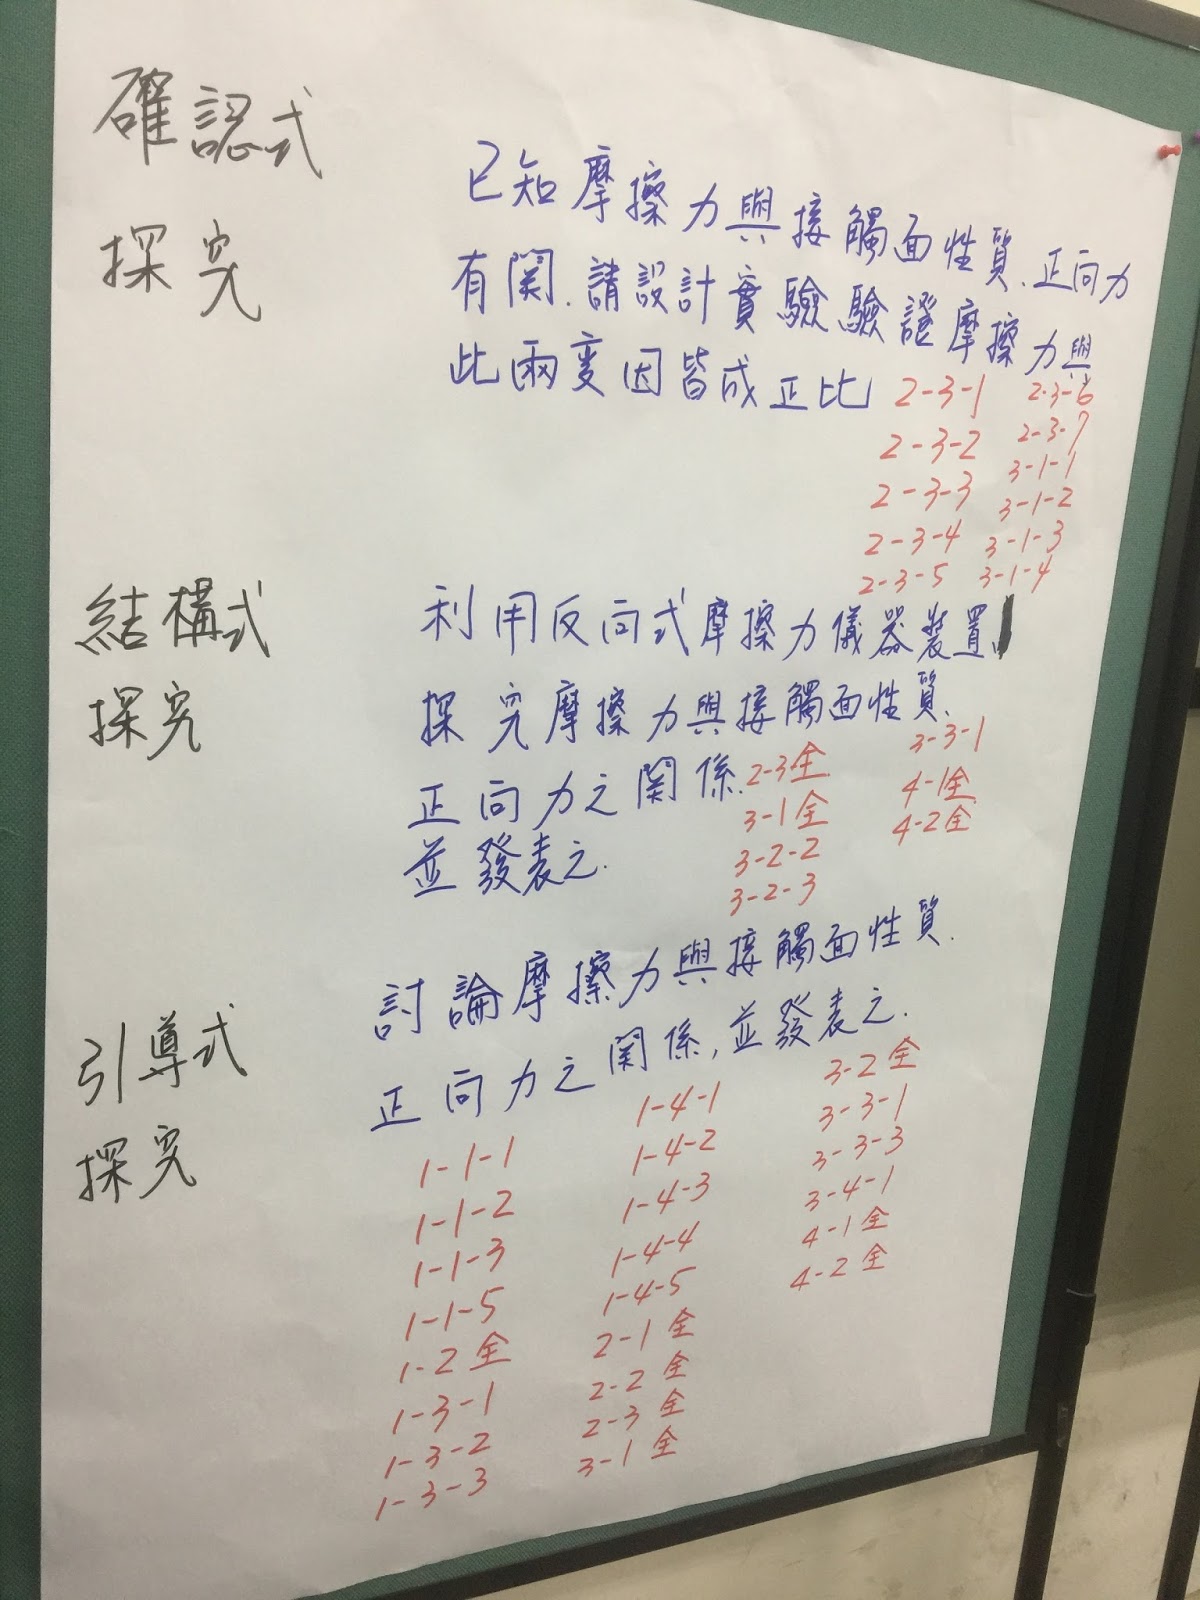 確認式
探究
已知摩擦力與接觸面性質.正向力
有関.請設計實驗驗證摩擦力與
此兩变因皆成正比
2-3-1
2-3-2
2-3-3
2-3-4
2-3-5
2-3-6
2-3-7
3-1-1
3-1-2
3-1-3
3-1-4
結構式
探究
利用反向式摩擦力儀器裝置
探究摩擦力與接觸面性質.
正向力之関係.
並發表之.
2-3全
3-1全
3-2-2
3-2-3
3-3-1
4-1全
4-2全
引導式
探究
討論摩擦力與接觸面性質.
正向力之関係,並發表之.
1-1-1
1-1-2
1-1-3
1-1-5
1-2全
1-3-1
1-3-2
1-3-3
1-4-1
1-4-2
1-4-3
1-4-4
1-4-5
2-1全
2-2全
2-3全
3-1全
3-2全
3-3-1
3-3-3
3-4-1
4-1全
4-2全